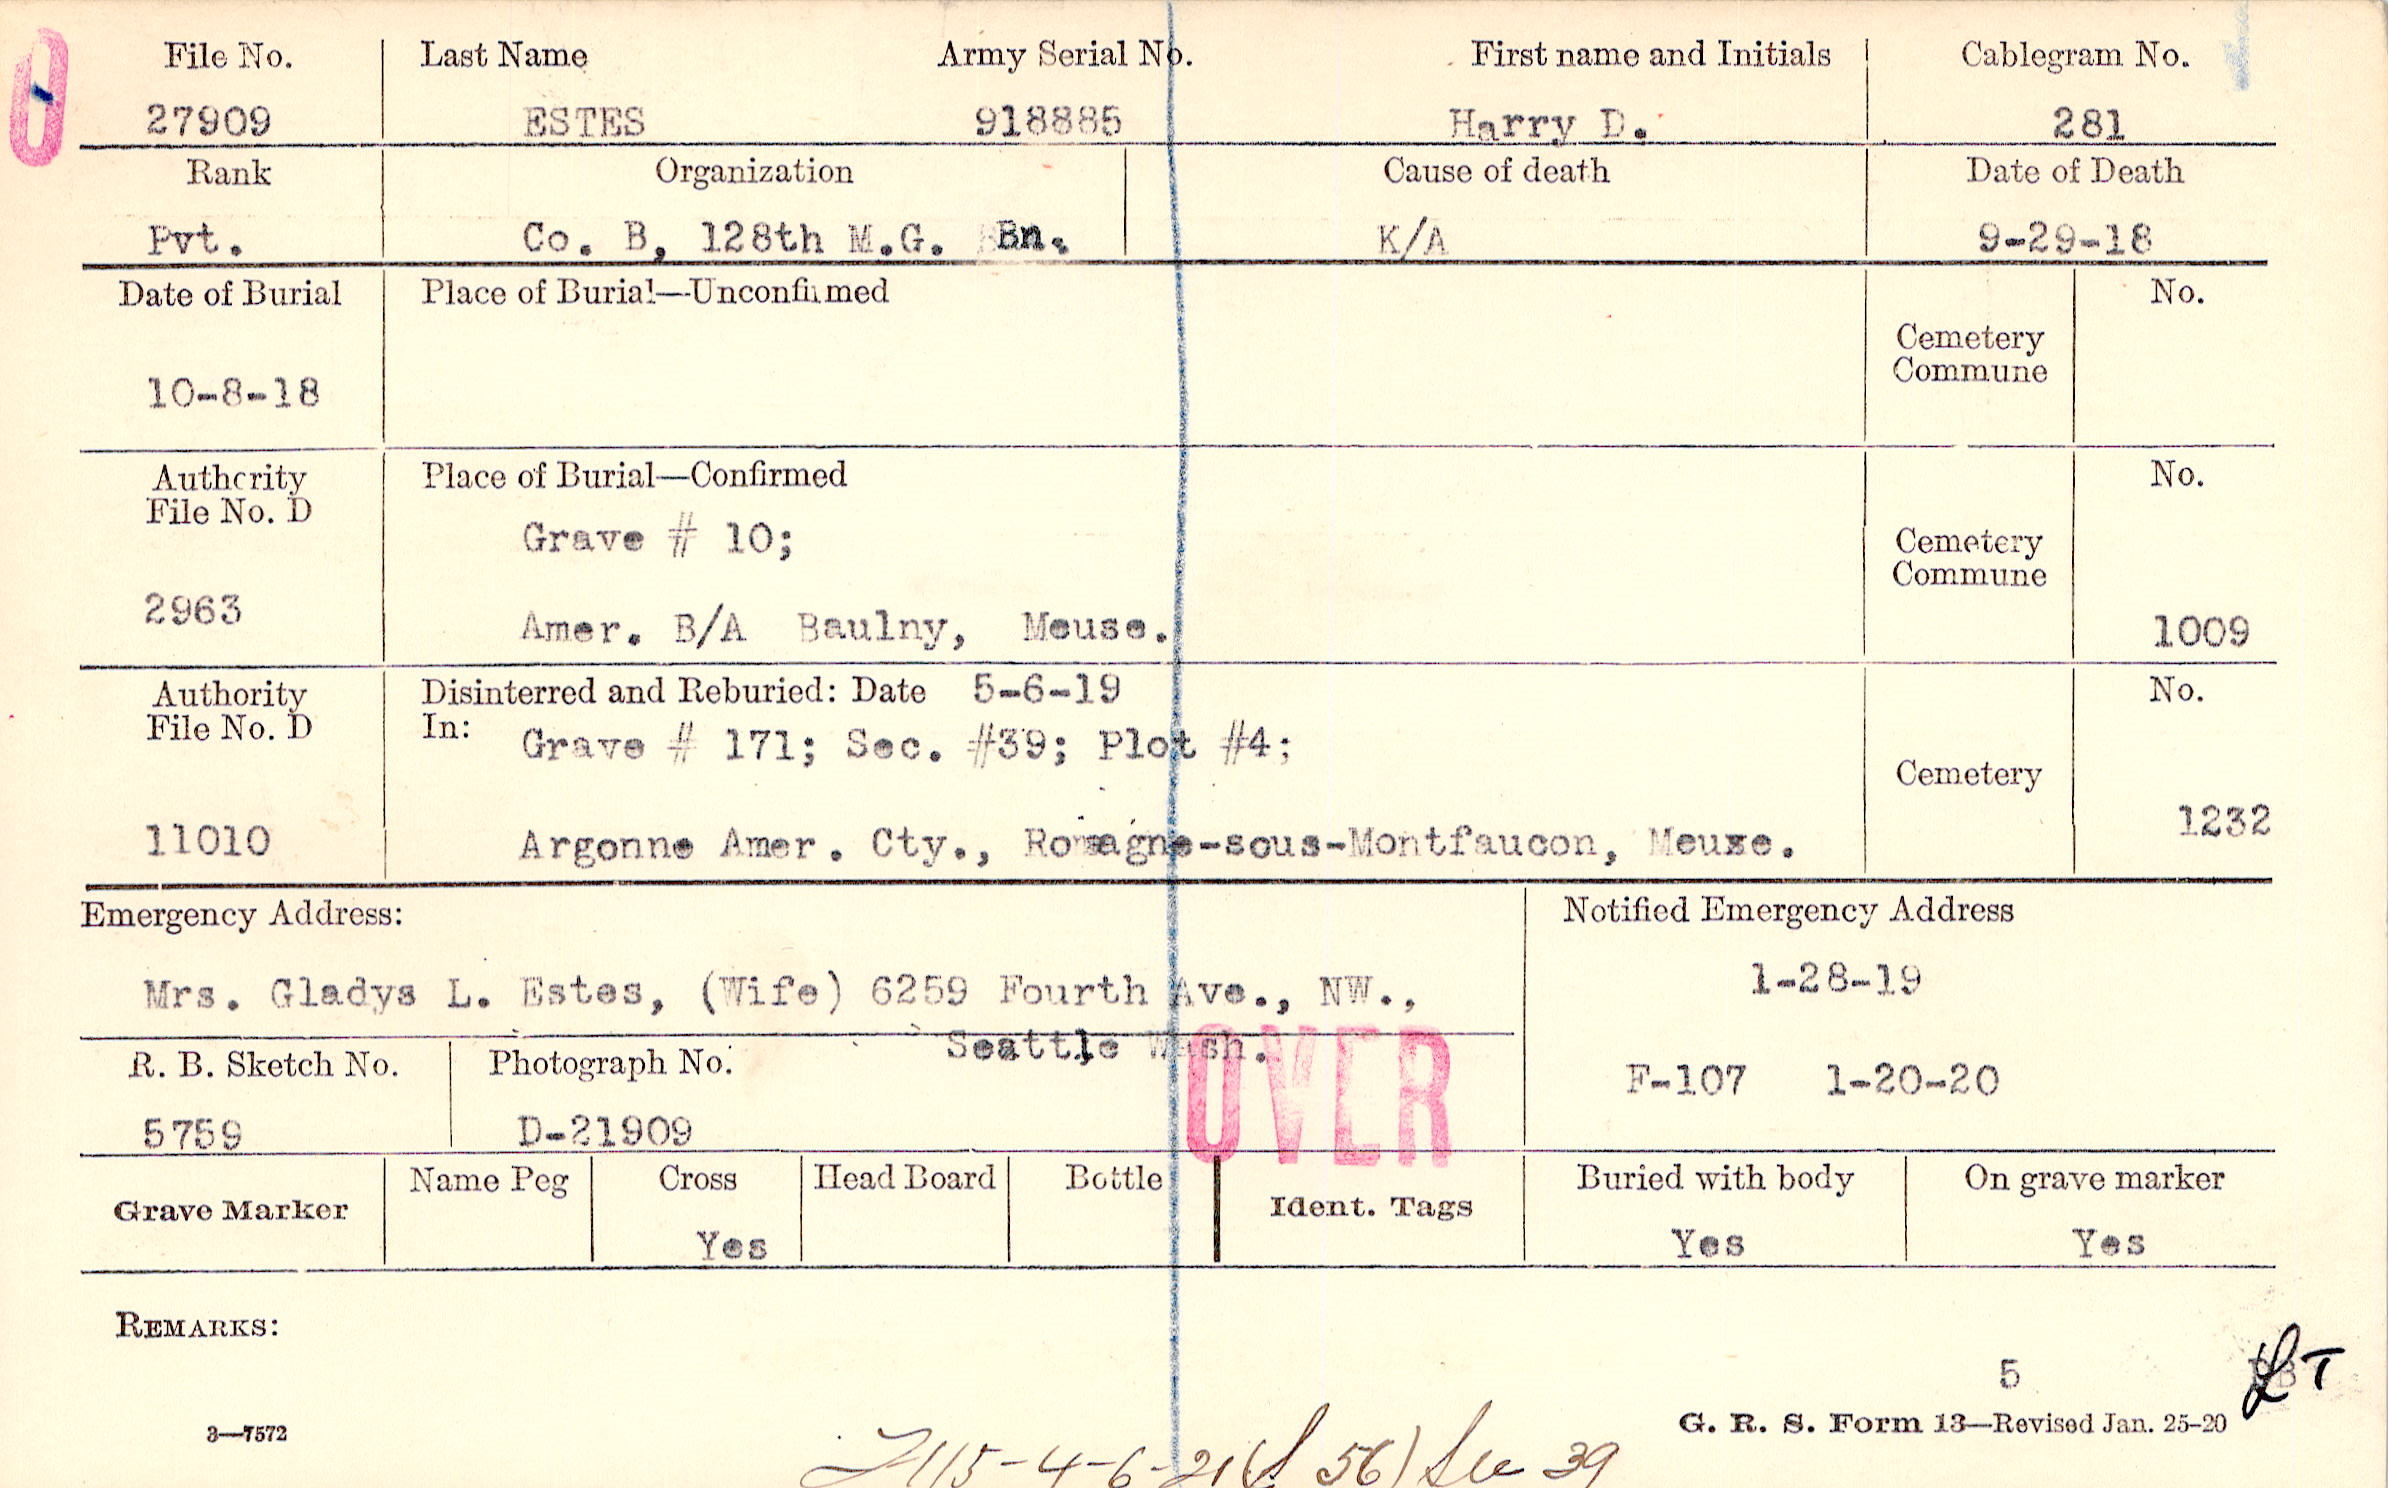 File No. Last Name Army Serial No. First name and Initials Cablegram No.
27909 ESTES 918885 Harry D. 281
Rank Organization Cause of death Date of Death
Pvt. Co. B, 128th M.G. Bn. K/A 9-29-18
Date of Burial Place of Burial—Unconfirmed No.
Cemetery
Commune
10-8-18
Authority Place of Burial—Confirmed No.
File No. D
Grave # 10;
Cemetery
Commune
2963 Amer. B/A Baulny, Meuse. 1009
Authority Disinterred and Reburied: Date 5-6-19 No.
File No. D In: Grave # 171; Sec. #39; Plot #4;
Cemetery
11010 Argonne Amer. Cty., Romagne-sous-Montfaucon, Meuse. 1232
Emergency Address: Notified Emergency Address
Mrs. Gladys L. Estes, (Wife) 6259 Fourth Ave., NW., 1-28-19
Seattle Wash.
OVER
R. B. Sketch No. Photograph No. F-107 1-20-20
5759 D-21909
Grave Marker Name Peg Cross Head Board Bottle Ident. Tags Buried with body On grave marker
Yes Yes Yes
REMARKS:
5 LT
3—7572 G. R. S. Form 13—Revised Jan. 25-20
115-4-6-21 ( 56) Sec 39